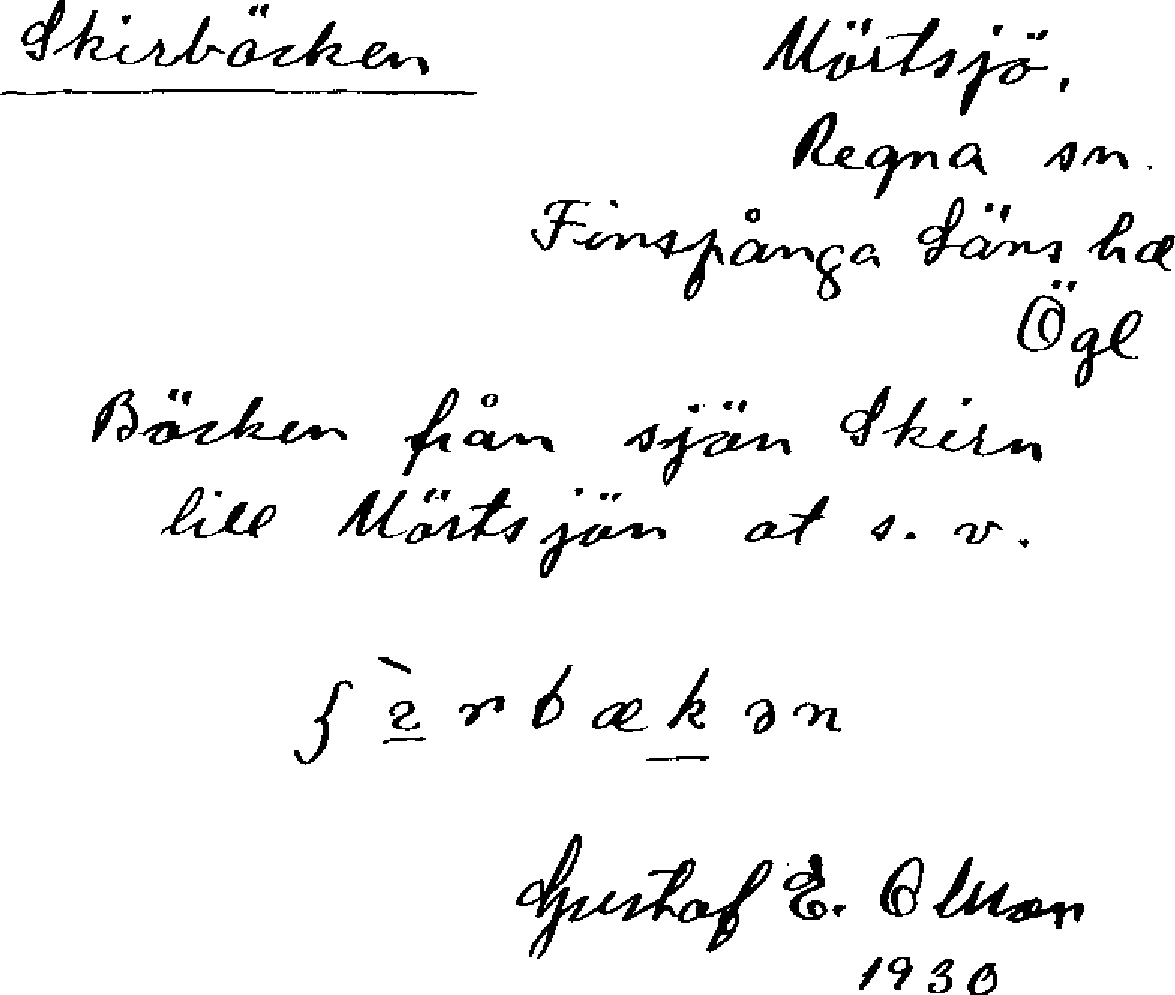 Skirbäcken Mörtsjö,
Regna sn.
Finspånga Läns hd
Ögl
Bäcken från sjön Skirn
till Mörtsjön åt s. v.
Gustaf E. Olsson
1930